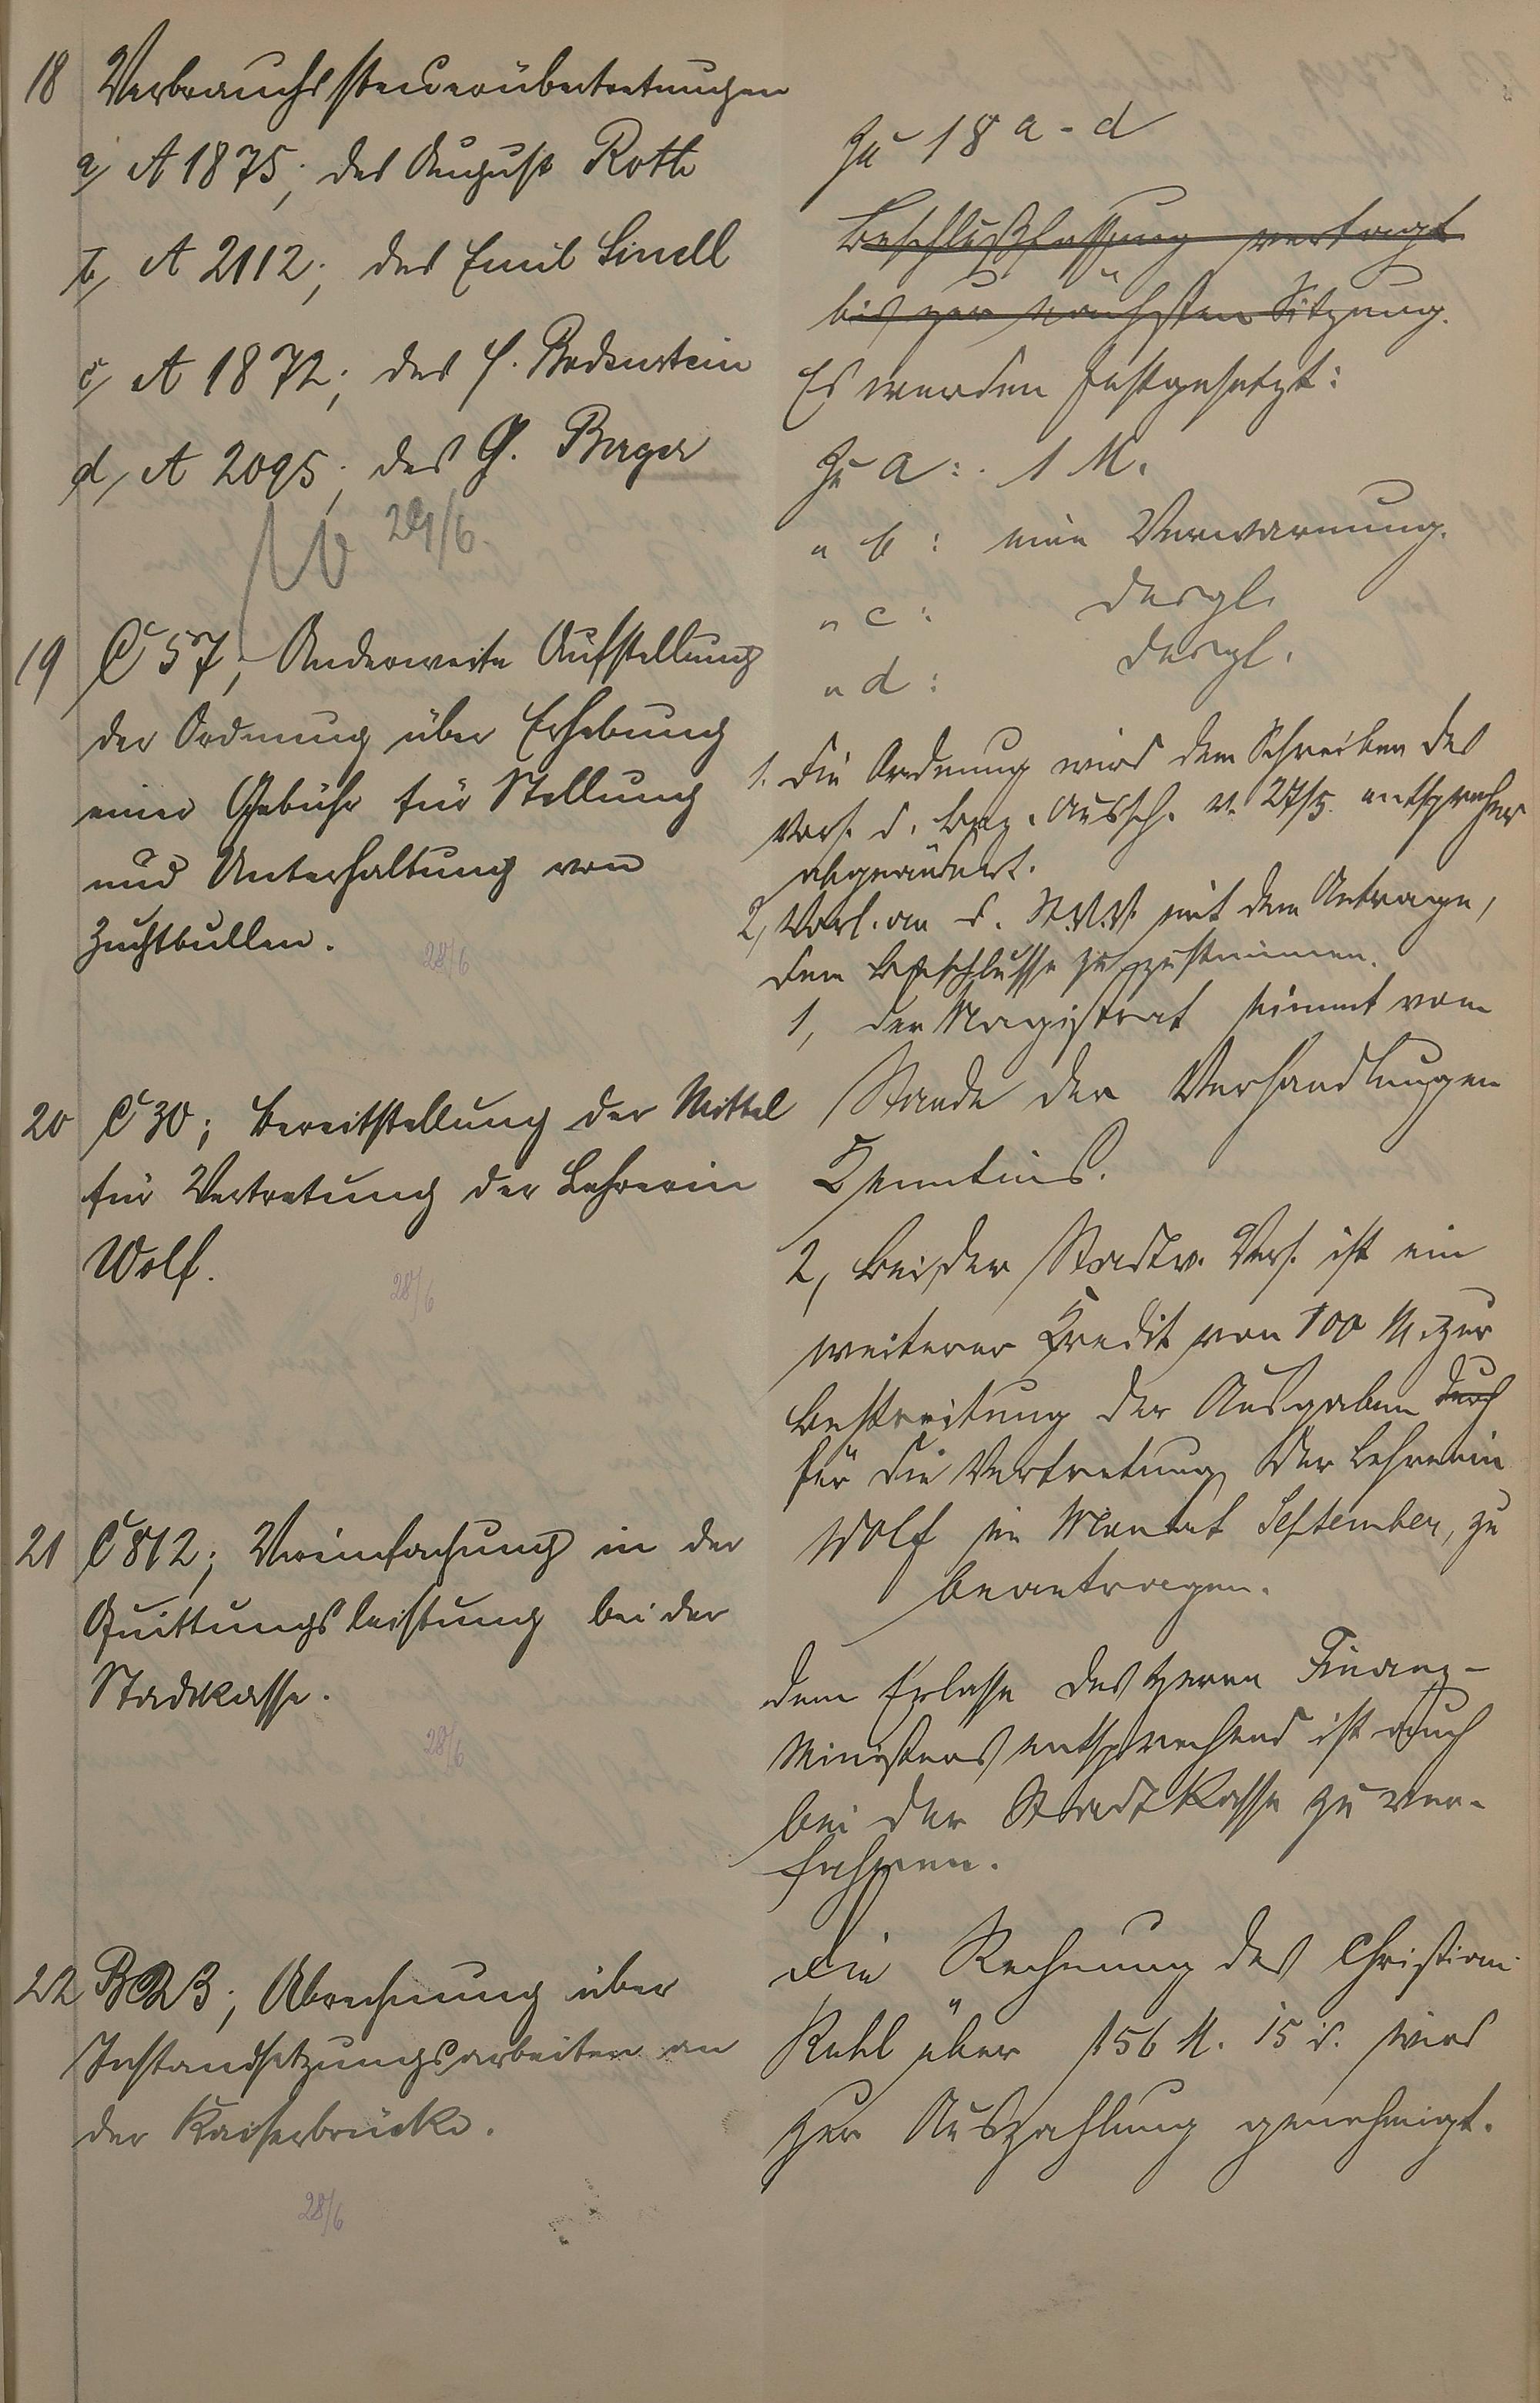 18 Verbrauchssteuerübertretungen
a, A 1875; des August Roth
b, A 2112; des Emil Linell
c, A 1872; des H. Bodenstein
d, A 2095; des G. Berger
29/6.
19 C 57; Anderweite Aufstellung
der Ordnung über Erhebung
einer Gebühr für Stellung
und Unterhaltung von
Zuchtbullen.
28/6
20 C 30; Bereitstellung der Mittel
für Vertretung der Lehrerin
Wolf.
28/6
21 C 812; Vereinfachung in der
Quittungsleistung bei der
Stadtkasse.
28/6
22 B 23; Abrechnung über
Instandsetzungsarbeiten an
der Kaiserbrücke.
28/6
Zu 18 a - d
Beschlußfassung vertagt
bis zur nächsten Sitzung.
Es werden festgesetzt:
Zu a: 1 M.
" b: eine Verwarnung.
" c: desgl.
" d: desgl.
1. Die Ordnung wird dem Schreiben des
Vors. d. Bez. Aussch. v. 27/5. entsprechend
abgeändert.
2, Vorl. an d. St.V.V. mit dem Antrage,
dem Beschlusse zuzustimmen.
1, Der Magistrat nimmt vom
Stande der Verhandlungen
Kenntnis.
2, Bei der Stadtv. Vers. ist ein
weiterer Kredit von 100 M. zur
Bestreitung der Ausgaben durch
für die Vertretung der Lehrerin
Wolf im Monat September, zu
beantragen.
Dem Erlasse des Herrn Finanz-
Ministers entsprechend ist auch
bei der Stadtkasse zu ver-
fahren.
Die Rechnung des Christian
Ruhl über 156 M. 15 d. wird
zur Auszahlung genehmigt.